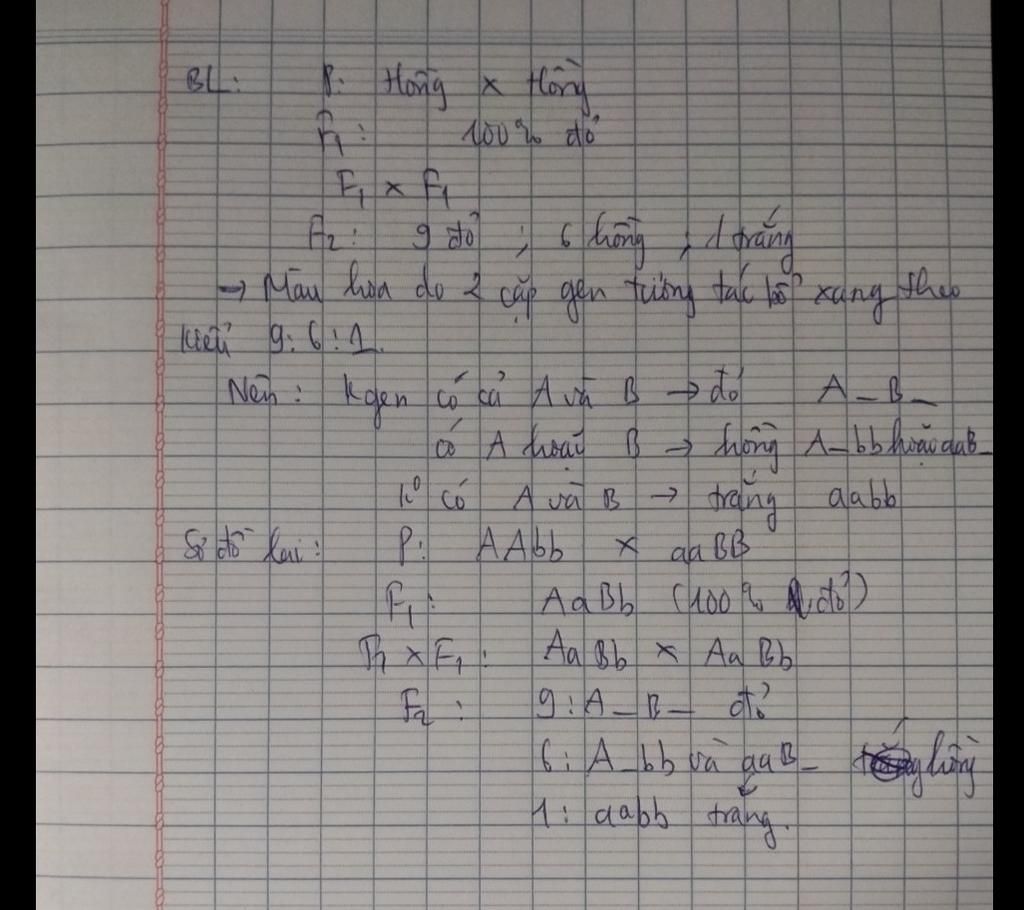 BL: P: Hồng x Hồng
F₁: 100% đỏ
F₁ x F₁
F₂: 9 đỏ ; 6 hồng ; 1 trắng
→ Màu hoa do 2 cặp gen tương tác bổ xung theo
kiểu 9:6:1.
Nên: Kgen có cả A và B → đỏ A_B_
có A hoặc B → hồng A_bb hoặc aaB_
K⁰ có A và B → trắng aabb
Sơ đồ lai: P: AAbb x aaBB
F₁: AaBb (100% đỏ)
F₁ x F₁: AaBb x AaBb
F₂ : 9: A_B_ đỏ
6: A_bb và aaB_ hồng
1: aabb trắng.